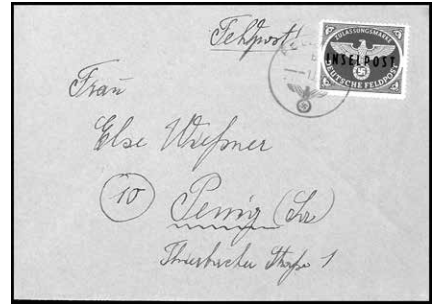 Feldpost!
ZULASSUNGSMARKE
INSELPOST
DEUTSCHE FELDPOST
Frau
Else Wießner
(10) Penig (Sa)
Thierbacher Straße 1